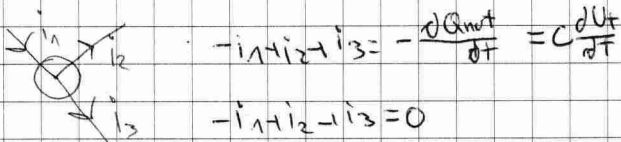 i₁
i₂
i₃
-i₁+i₂+i₃ = - dQnut/dt = C dUt/dt
-i₁+i₂-i₃=0